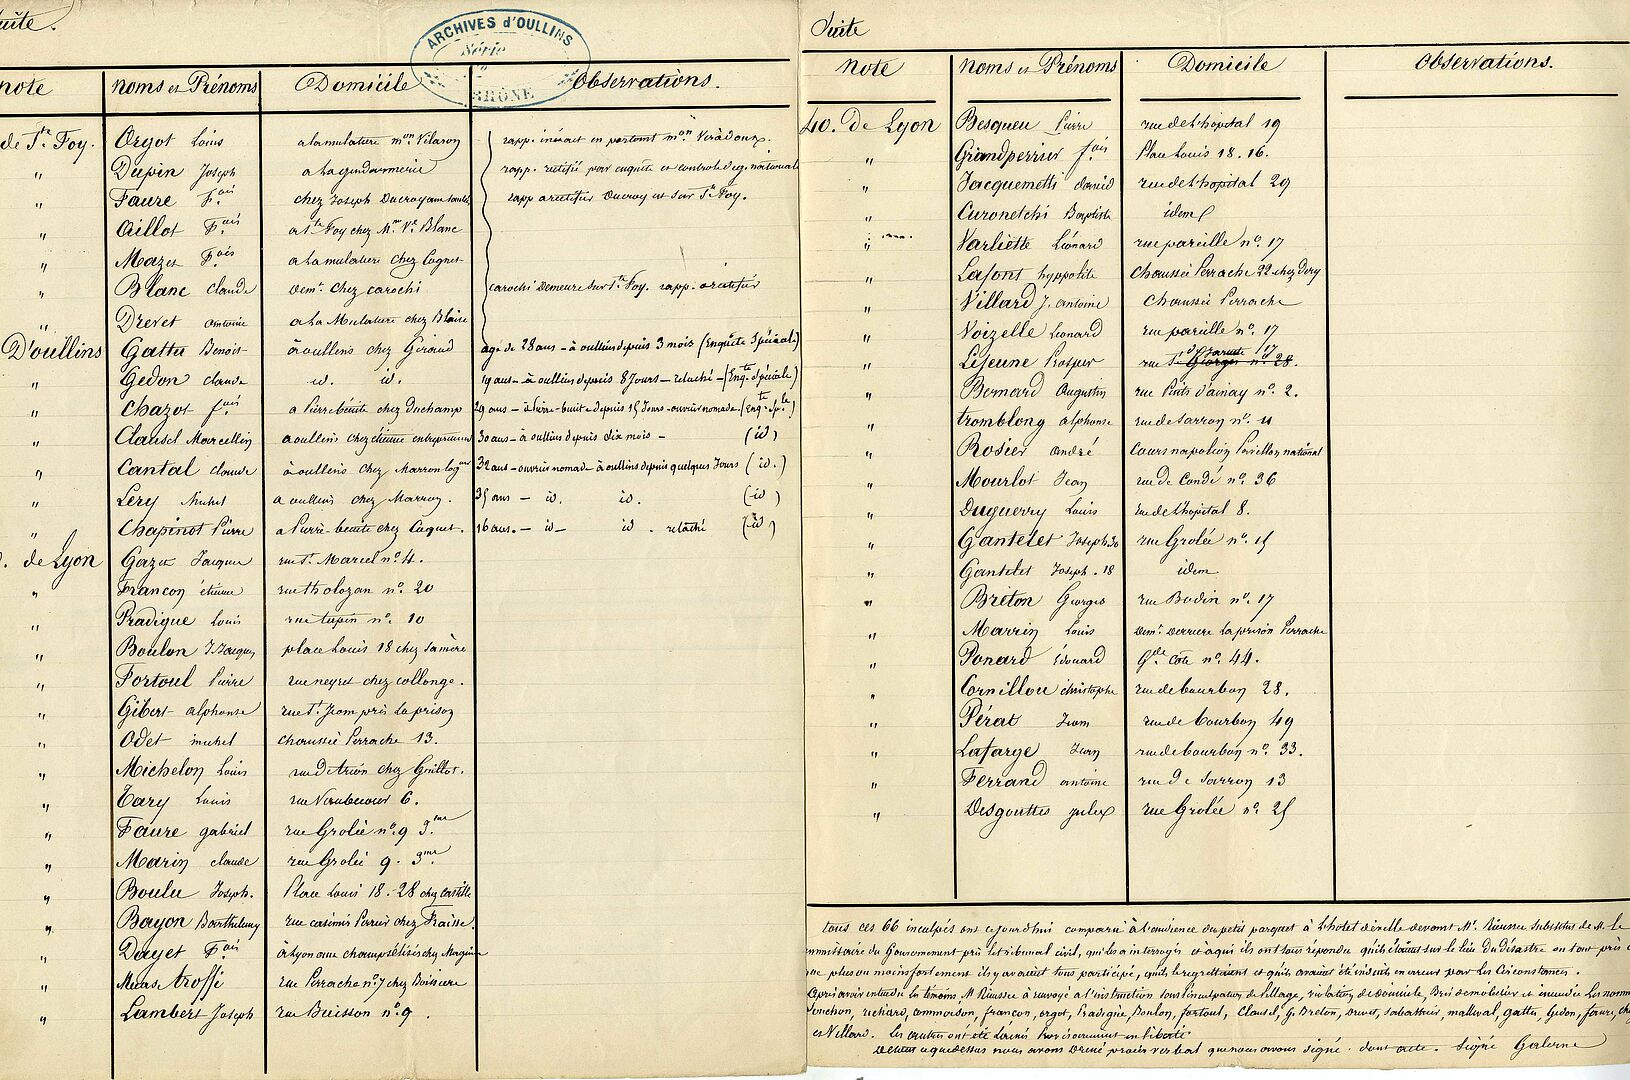 Suite.
ARCHIVES d'OULLINS
Série
RHÔNE
note noms et Prénoms Domicile Observations.
de Ste Foy. Orgot Louis a la mulatiere mon Vilaron rapp. inéxact en portant mon
" Dupin Joseph a la gendarmerie rapp. rectifié par enquete et controle de g. nationale
" Faure fois chez Joseph Ducroy rapp a rectifier Ducroy est sur Ste Foy.
" Aillot fois a Ste Foy chez Mme Ve Blanc
" Mazet fois a la mulatiere chez Cognet
" Blanc claude demt chez carochi carochi Demeure sur Ste Foy. rapp. a rectifier
" Drevet antoine a la Mulatiere chez Blaise
D'oullins Gattu Benoit à oullins chez Geraud agé de 28 ans - à oullins depuis 3 mois (Enquête Spéciale)
" Gedon claude id. id. 19 ans - à oullins depuis 8 Jours - relaché - (Enqte Spéciale)
" Chazot fois a Pierre-bénite chez Duchamp 29 ans - à Pierre-bénite depuis 15 Jours - ouvrier nomade. (Enqte Sple)
" Clausel Marcellin a oullins chez étienne entrepreneur 30 ans - à oullins depuis dix mois - (id)
" Cantal claude à oullins chez Marron 32 ans - ouvrier nomade - à oullins depuis quelques Jours (id.)
" Lery Michel a oullins chez Marron. 35 ans - id. id. (id)
" Chapinot Pierre a Pierre-bénite chez Caquet. 16 ans. - id - id. relaché (id)
de Lyon Gazet Jacques rue St Marcel no 4.
" Françon étienne rue tholozan no. 20
" Pradigue Louis rue tupin no. 10
" Boulon J. Jacques place Louis 18 chez sa mère
" Fortoul Pierre rue neyret chez collonge.
" Gibert alphonse rue St Jean près la prison
" Odet michel chaussée Perrache 13.
" Michelon Louis rue de trion chez Guillot.
" Tary Louis rue Vaubecour 6.
" Faure gabriel rue Grolée no. 9 3me
" Marin claude rue Grolée 9. 3me
" Boulu Joseph. Place Louis 18. 28 chez castille
" Bayon Barthelemy rue casimir Perrier chez Fraisse.
" Dayet fois à Lyon aux champs élisés chez
" Meas troffé rue Perrache no 7 chez Boissiere
" Lambert Joseph rue Buisson no 9.
Suite
note noms et Prénoms Domicile Observations.
40. De Lyon Besqueu Pierre rue de l'hopital 19
" Grandperrier fois Place Louis 18. 16.
" Jacquemetti david rue de l'hopital 29
" Curonetchi Baptiste idem
" Varliette Léonard rue pareille no. 17
" Lafont hyppolite Chaussée Perrache 22 chez Dery
" Villard J. antoine Chaussée Perrache
" Voizelle Leonard rue pareille no. 17
" Lejeune Prosper rue St Georges no. 28. 17
" Bernard Augustin rue Puits d'ainay no. 2.
" tromblong alphonse rue de Sarron no. 11
" Rosier andré Cours napoléon Pavillon national
" Mourlot Jean rue de Condé no. 36
" Duguerry Louis rue de l'hopital 8.
" Gantelet Joseph 30 rue Grolée no. 15
" Gantelet Joseph. 18 idem
" Breton Georges rue Bodin no. 17
" Marrin Louis demt derriere la prison Perrache
" Ponard Edouard Gde Côte no. 44.
" Cornillon christophe rue de bourbon 28.
" Pérat Jean rue de bourbon 49
" Lafarge Jean rue de bourbon no. 33.
" Ferrand antoine rue de Sarron 13
" Desgouttes Julex rue Grolée no. 25
tous ces 66 inculpés ont cejourdhui comparu à l'audience du petit parquet à l'hotel de ville devant Mr. Rieussec Substitut de M. le
mmissaire du Gouvernement près le tribunal civil, qui les a interrogés et à qui ils ont tous répondu qu'ils étaient sur le lieu du désastre ou tout près
ue plus ou moins fortement ils y avaient tous participé, qu'ils le regrettaient et qu'ils avaient été induits en erreur par les Circonstances.
Après avoir entendu les témoins, M. Rieussec à renvoyé à l'instruction sous l'inculpation de Pillage, violation de domicile, Bris de mobilier et incendie les nomm
ouchon, richard, commoison, françon, orgot, Pradigue, Boulon, fortoul, Clausel, G. Breton, Drevet, Sabattier, mallaval, gattu, Gedon, faure,
et Villard. Les autres ont été laissés Provisoirement en liberté.
De tout ce que dessus nous avons Dressé procès verbal que nous avons signé. dont acte. Signé Galerne